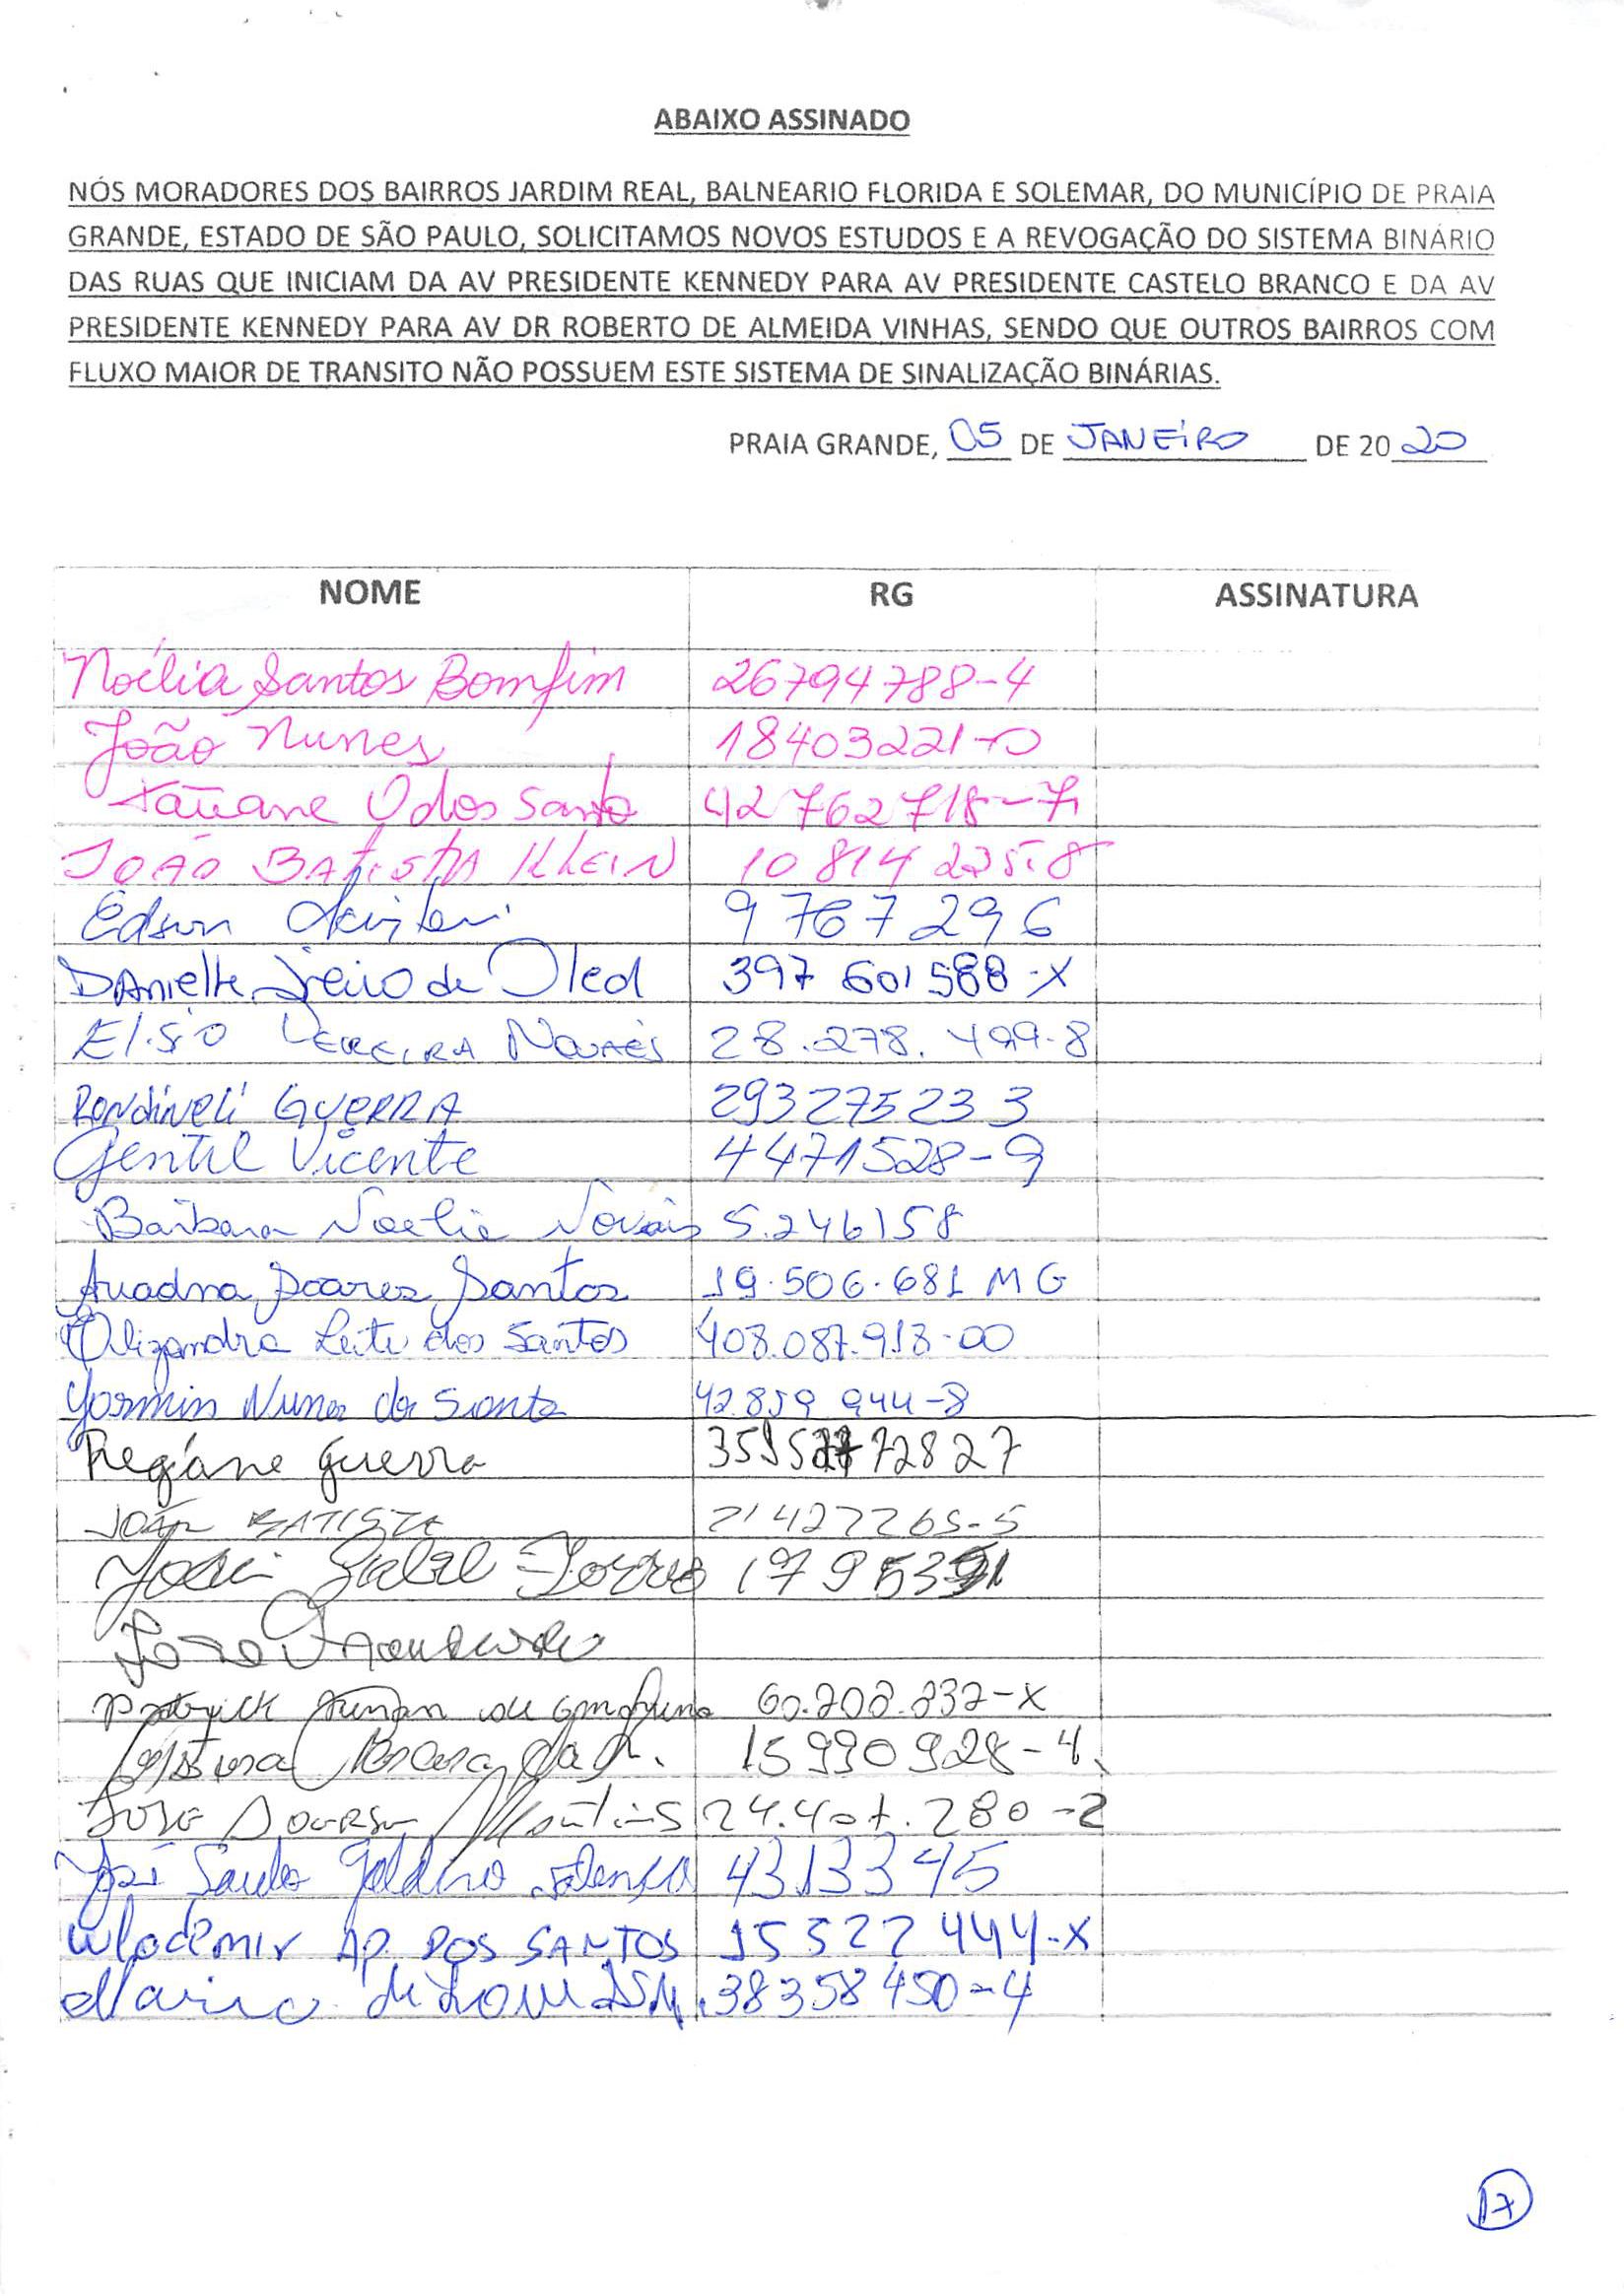 ABAIXO ASSINADO
NÓS MORADORES DOS BAIRROS JARDIM REAL, BALNEARIO FLORIDA E SOLEMAR, DO MUNICÍPIO DE PRAIA
GRANDE, ESTADO DE SÃO PAULO, SOLICITAMOS NOVOS ESTUDOS E A REVOGAÇÃO DO SISTEMA BINÁRIO
DAS RUAS QUE INICIAM DA AV PRESIDENTE KENNEDY PARA AV PRESIDENTE CASTELO BRANCO E DA AV
PRESIDENTE KENNEDY PARA AV DR ROBERTO DE ALMEIDA VINHAS, SENDO QUE OUTROS BAIRROS COM
FLUXO MAIOR DE TRANSITO NÃO POSSUEM ESTE SISTEMA DE SINALIZAÇÃO BINÁRIAS.
PRAIA GRANDE, 05 DE JANEIRO DE 20 20
NOME RG ASSINATURA
Noélia Santos Bomfim 26794788-4
João Nunes 18403221-0
Tatiane O dos Santo 42762718-7
JOÃO BATISTA KLEIN 10814225-8
Edson 9767296
Danielle de 397601588-X
Elisio PEREIRA Novaes 28.278.499-8
Rondineli GUERRA 293275233
Gentil Vicente 4471528-9
Barbara Noelia Novais 5.246158
Ariadna Soares Santos 19.506.681 MG
Elizandra Leite dos Santos 408.087.918-00
Yasmin Nunes dos Santos 42.859.944-8
Regiane Guerra
JOÃO BATISTA 21427265-5
José
José
60.208.832-X
15990928-4
JOSE Martins 24.407.280-2
José Saulo Galdino 43133945
Wlademir AP. DOS SANTOS 15522444-X
38358450-4
17